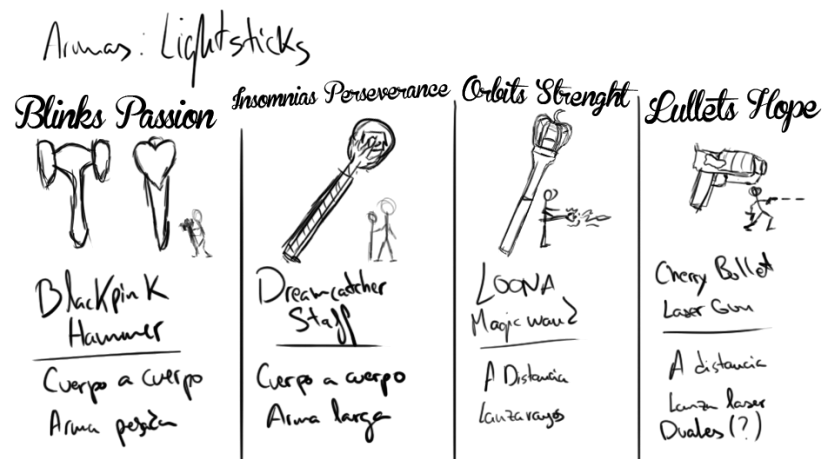 Armas: Lightsticks
Blinks Passion
Blackpink
Hammer
Cuerpo a cuerpo
Arma pesada
Insomnias Perseverance
Dreamcatcher
Staff
Cuerpo a cuerpo
Arma larga
Orbits Strenght
LOONA
Magic wand
A Distancia
Lanzarayos
Lullets Hope
Cherry Bullet
Laser Gun
A distancia
Lanza laser
Duales (?)